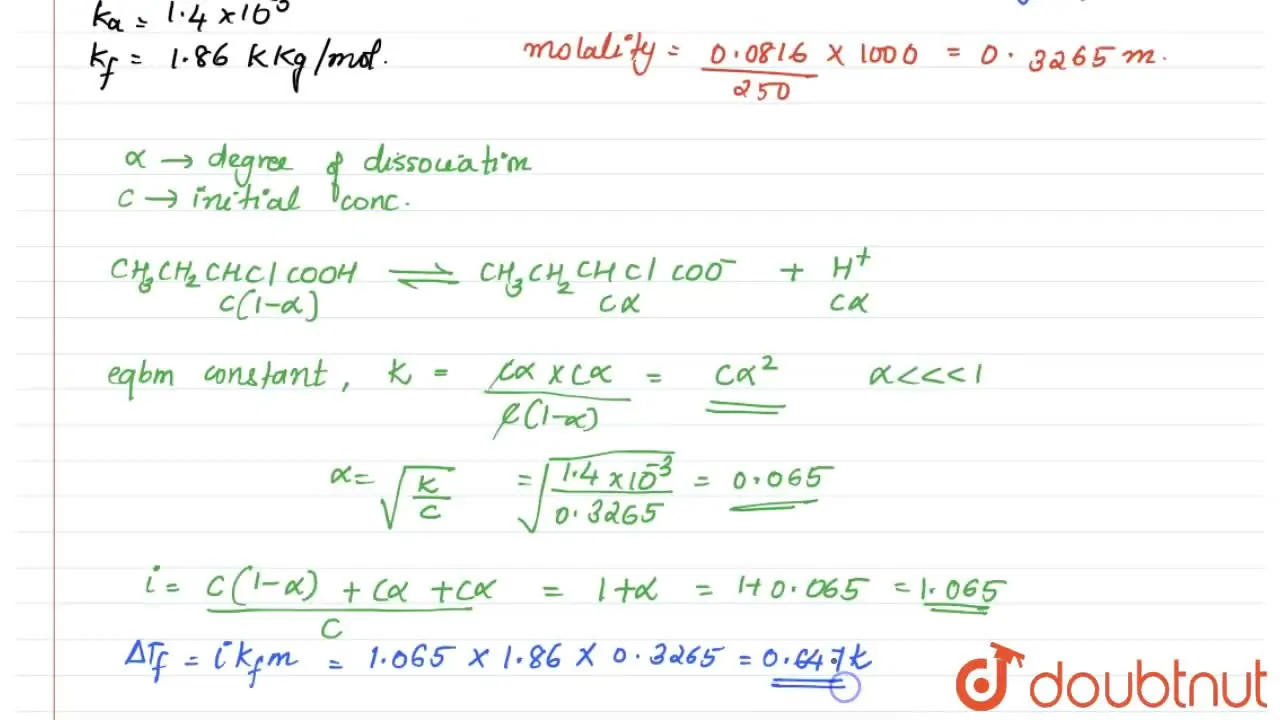 ka = 1.4 × 10⁻³
kf = 1.86 K Kg/mol.
molality = 0.0816/250 × 1000 = 0.3265 m.
α → degree of dissociation
C → initial conc.
CH₃CH₂CHClCOOH ⇌ CH₃CH₂CHClCOO⁻ + H⁺
C(1-α) Cα Cα
eqbm constant, K = Cα × Cα / C(1-α) = Cα² α<<<1
α = √(K/C) = √(1.4 × 10⁻³ / 0.3265) = 0.065
i = C(1-α) + Cα + Cα / C = 1+α = 1+0.065 = 1.065
ΔTf = i kf m = 1.065 × 1.86 × 0.3265 = 0.647 k
doubtnut